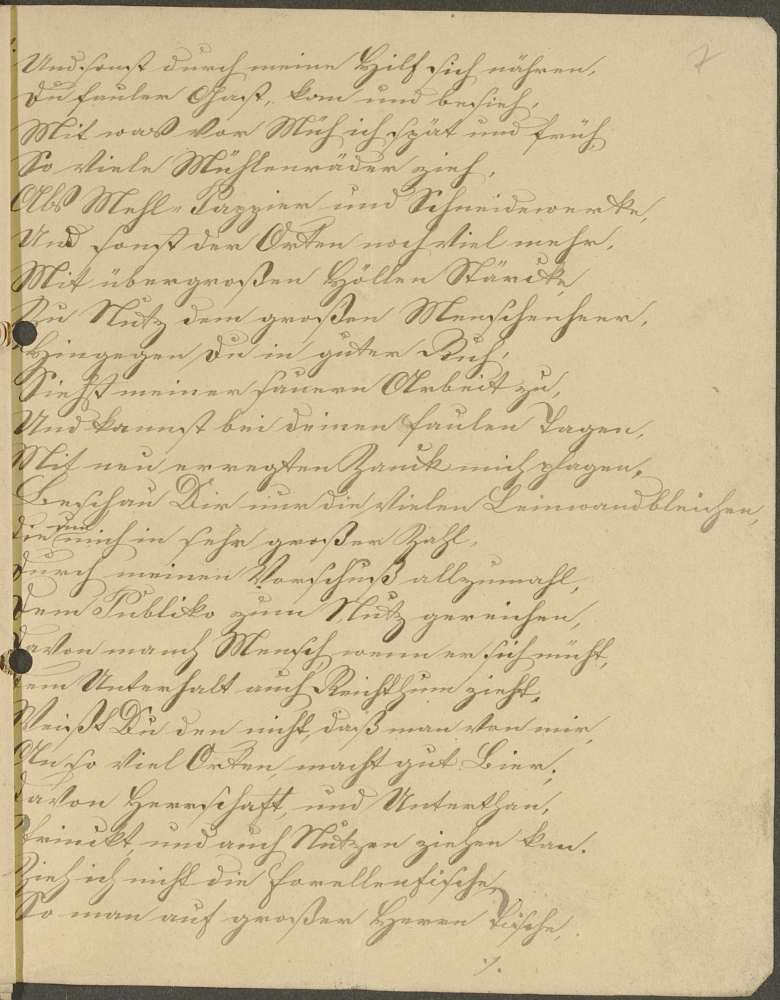 7
Und sonst durch meine Hilf sich nähren,
Du fauler Gast, kom und besieh,
Mit was vor Müh ich spät und früh,
So viele Mühlenräder zieh,
Als Mehl- Pappier und Schneidewerke,
Und sonst der Orten noch viel mehr,
Mit übergroßen Höllen Stärcke,
Zu Nutz dem großen Menschenheer,
Hingegen Du in guter Ruh,
Siehst meiner sauern Arbeit zu,
Und kannst bei deinen faulen Tagen,
Mit neu erregten Zanck mich plagen,
Beschau Dir nur die vielen Leinwandbleichen,
die um mich in sehr großer Zahl,
durch meinen Vorschuß allzumahl,
dem Publiko zum Nutz gereichen,
davon manch Mensch, wenn er sich müht,
dem Unterhalt auch Reichthum zieht,
Weißt Du den nicht, daß man von mir,
An so viel Orten, macht gut Bier,
davon Herrschaft, und Unterthan,
Trinckt, und auch Nutzen ziehen kan.
Zieh ich nicht die Forellenfische,
So man auf großer Herrn Tische,
./.